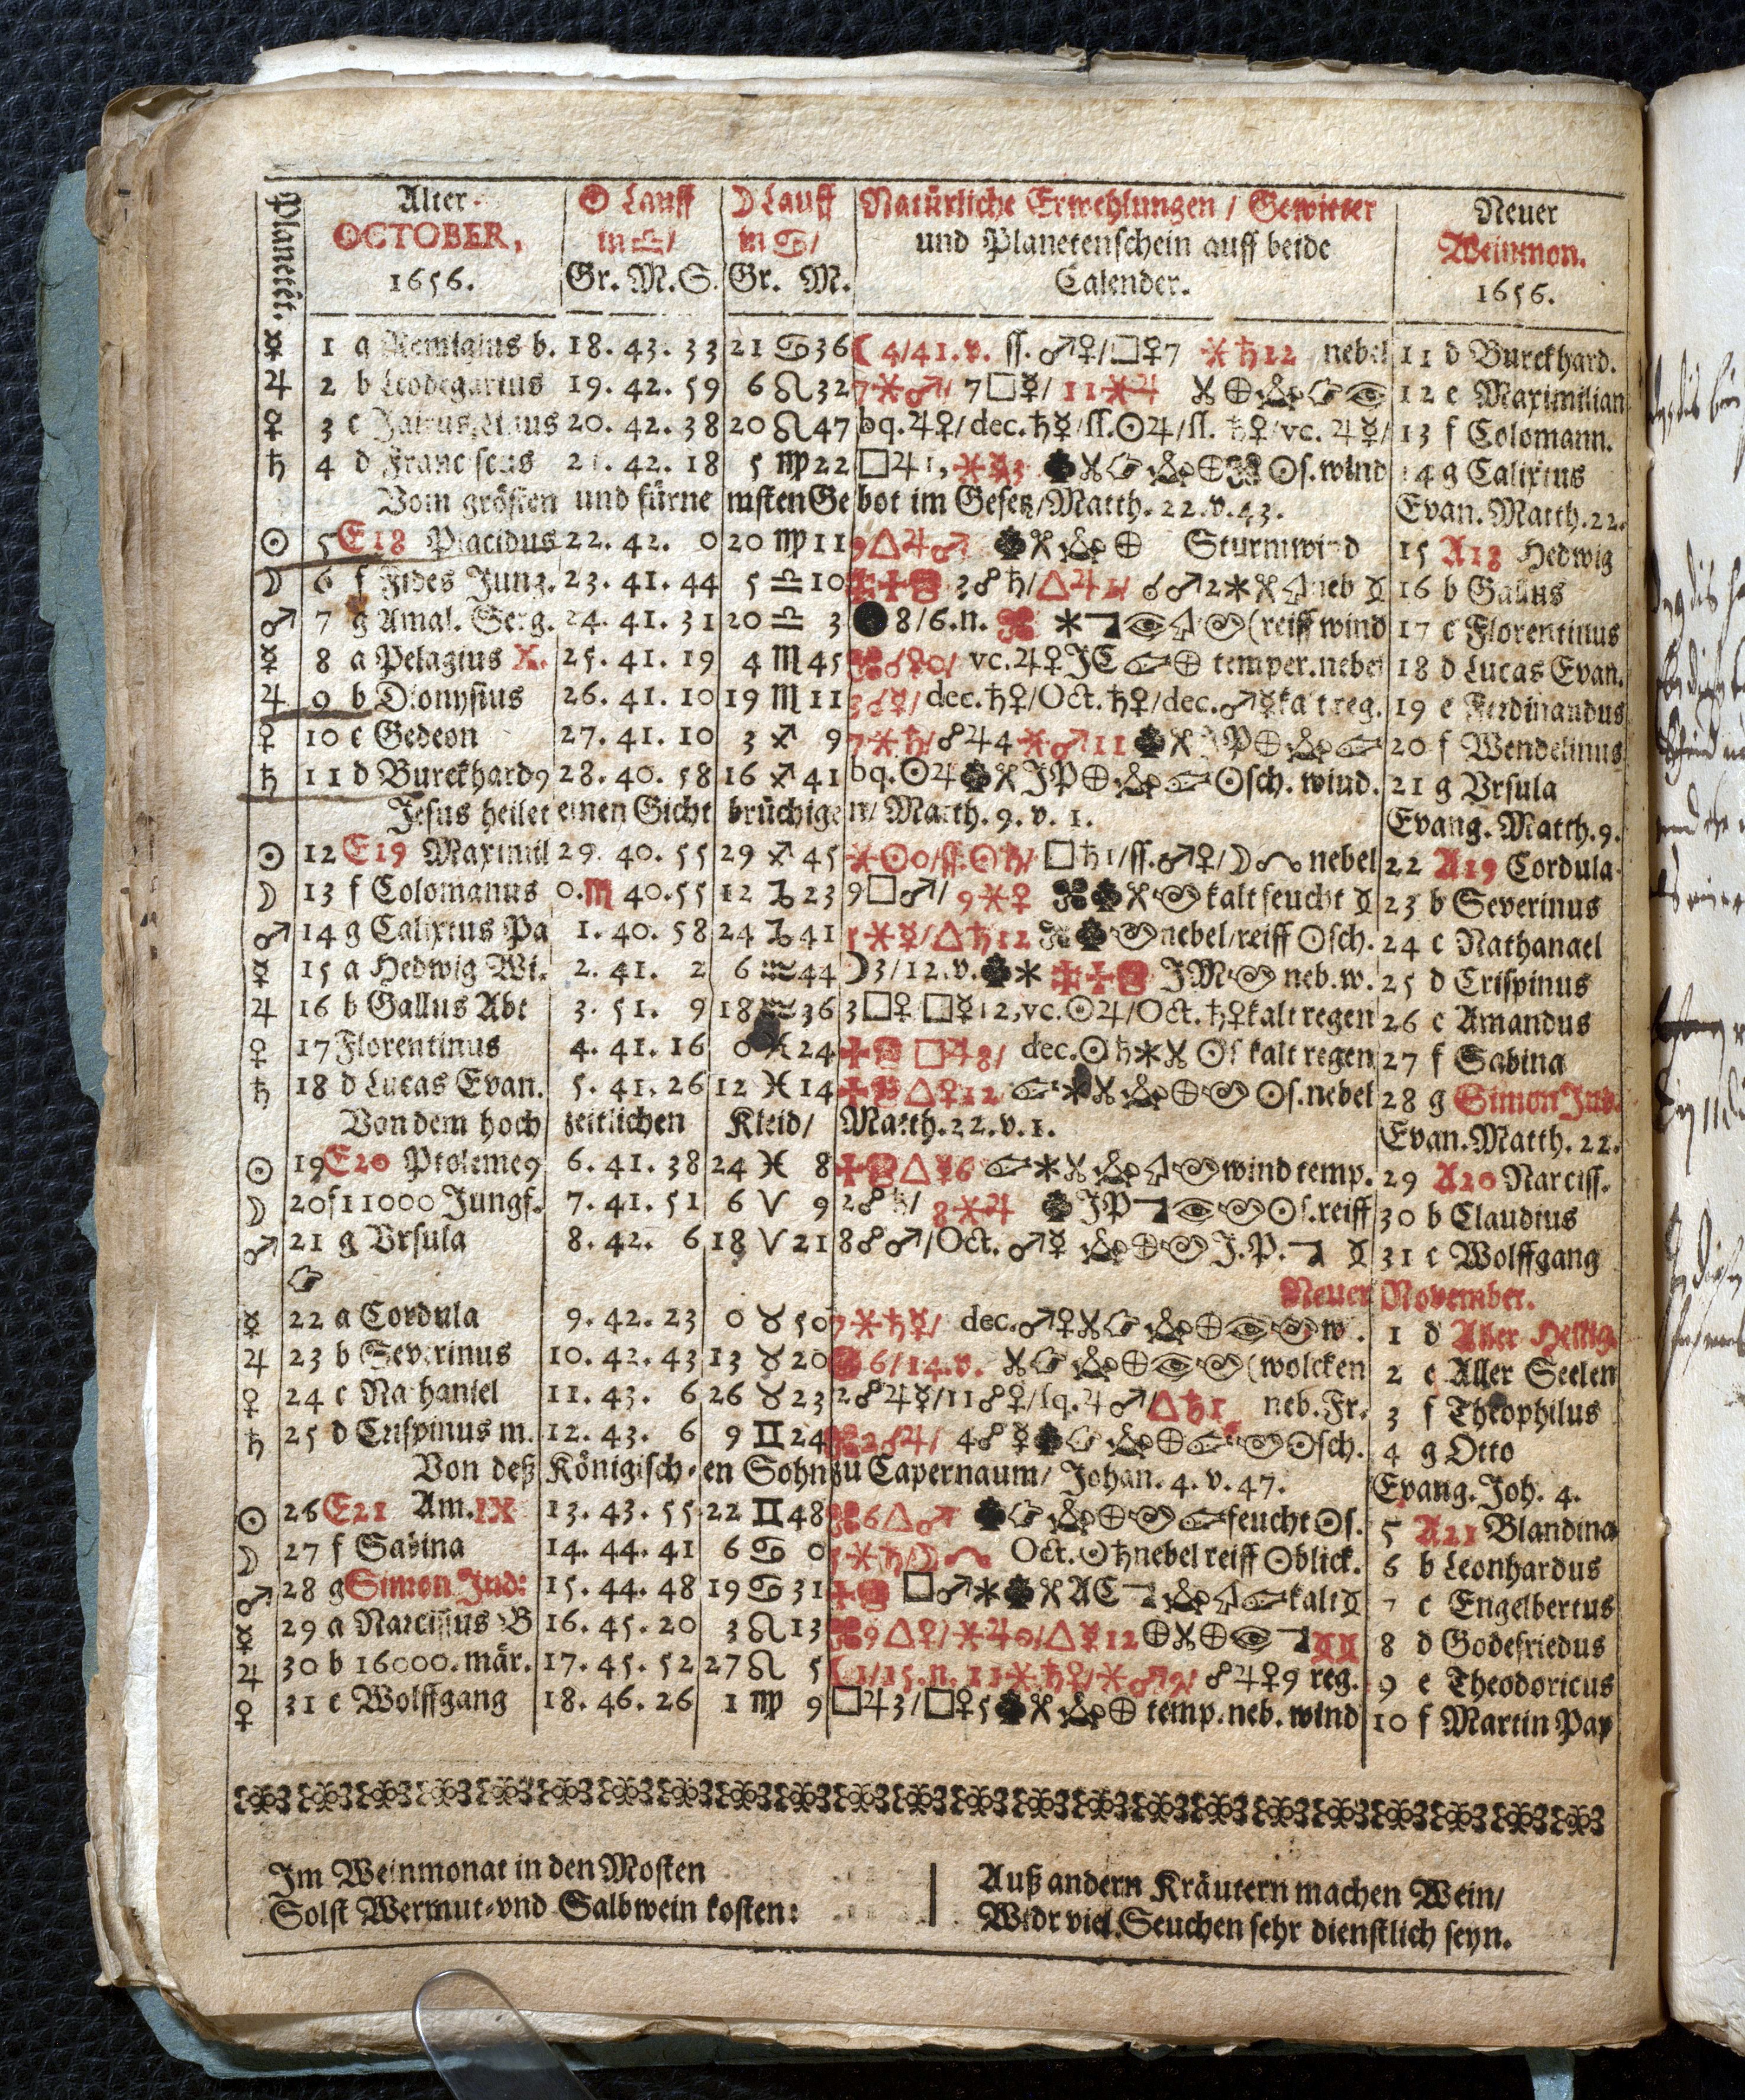 Planetē.
Alter OCTOBER, 1656.
☉ Lauff in ♎/ Gr. M. S.
☽ Lauff in ♋/ Gr. M.
Natürliche Erwehlungen / Gewitter und Planetenschein auff beide Calender.
Neuer Weinmon. 1656.
☿ 1 g Remigius b. 18. 43. 33 21 ♋ 36 ☾ 4/41. v. ſſ. ♂♀/□♀7 ⚹♄12 nebel 11 d Burckhard.
♃ 2 b Leodegarius 19. 42. 59 6 ♌ 32 7⚹♂/ 7□☿/ 11⚹♃ 12 e Maximilian
♀ 3 c Jairus, 20. 42. 38 20 ♌ 47 bq. ♃♀/ dec. ♄☿/ſſ. ☉♃/ſſ. ♄♀/vc. ♃☿/ 13 f Colomann.
♄ 4 d Franciscus 21. 42. 18 5 ♍ 22 □♃1, ⚹☿3 ☉ſ. wind 14 g Calixtus
Vom grösten und fürnemsten Gebot im Gesetz/Matth. 22. v. 43. Evan. Matth. 22.
☉ 5 E18 Placidus 22. 42. 0 20 ♍ 11 9△♃♂ Sturmwind 15 A18 Hedwig
☽ 6 f Fides Jung. 23. 41. 44 5 ♎ 10 3☍♄/△♃ ☌♂2 neb 16 b Gallus
♂ 7 g Amal. Serg. 24. 41. 31 20 ♎ 3 ● 8/6. n. (reiff wind 17 c Florentinus
☿ 8 a Pelagius X. 25. 41. 19 4 ♏ 45 ☌♀0/ vc. ♃♀ JC temper. nebel 18 d Lucas Evan.
♃ 9 b Dionysius 26. 41. 10 19 ♏ 11 3☌☿/ dec. ♄♀/Oct. ♄♀/dec. ♂☿ kalt reg. 19 e Ferdinandus
♀ 10 c Gedeon 27. 41. 10 3 ♐ 9 7⚹♄/☍♃4 ⚹♂11 JP 20 f Wendelinus
♄ 11 d Burckhard9 28. 40. 58 16 ♐ 41 bq. ☉♃ JP ☉sch. wind. 21 g Vrsula
Jesus heilet einen Gichtbrüchigen/ Matth. 9. v. 1. Evang. Matth. 9.
☉ 12 E19 Maximil 29. 40. 55 29 ♐ 45 ⚹☉0/ſſ. ☉♄/ □♄1/ſſ. ♂♀/☽ nebel 22 A19 Cordula
☽ 13 f Colomanus 0. ♏ 40. 55 12 ♑ 23 9□♂/ 9⚹♀ kalt feucht 23 b Severinus
♂ 14 g Calixtus Pa 1. 40. 58 24 ♑ 41 ⚹☿/△♄12 nebel/reiff ☉sch. 24 c Nathanael
☿ 15 a Hedwig Wi. 2. 41. 2 6 ♒ 44 ☽3/12. v. JM neb. w. 25 d Crispinus
♃ 16 b Gallus Abt 3. 51. 9 18 ♒ 36 3□♀ □☿12, vc. ☉♃/Oct. ♄♀ kalt regen 26 e Amandus
♀ 17 Florentinus 4. 41. 16 0 ♓ 24 □♃8/ dec. ☉♄ ☉ſ kalt regen 27 f Sabina
♄ 18 d Lucas Evan. 5. 41. 26 12 ♓ 14 △♀12 ☉ſ. nebel 28 g Simon Jud.
Von dem hochzeitlichen Kleid/ Matth. 22. v. 1. Evan. Matth. 22.
☉ 19 E20 Ptoleme9 6. 41. 38 24 ♓ 8 △☿6 wind temp. 29 A20 Narciss.
☽ 20 f 11000 Jungf. 7. 41. 51 6 ♈ 9 2☍♄/ 8⚹♃ JP ☉ſ. reiff 30 b Claudius
♂ 21 g Vrsula 8. 42. 6 18 ♈ 21 8☍♂/Oct. ♂☿ J. P. 31 c Wolffgang
Neuer November.
☿ 22 a Cordula 9. 42. 23 0 ♉ 50 ⚹♄☿/ dec. ♂♀ w. 1 d Aller Heilig.
♃ 23 b Severinus 10. 42. 43 13 ♉ 20 6/14. v. (wolcken 2 e Aller Seelen
♀ 24 c Nathaniel 11. 43. 6 26 ♉ 23 2☍♃☿/11☍♀/ſq. ♃♂/△♄1 neb. Fr. 3 f Theophilus
♄ 25 d Crispinus m. 12. 43. 6 9 ♊ 24 2☌♃/ 4☍☿ ☉sch. 4 g Otto
Von deß Königischen Sohn zu Capernaum/ Johan. 4. v. 47. Evang. Joh. 4.
☉ 26 E21 Am. IX 13. 43. 55 22 ♊ 48 6△♂ feucht ☉ſ. 5 A21 Blandina
☽ 27 f Sabina 14. 44. 41 6 ♋ 0 ⚹♄/☽ Oct. ☉♄ nebel reiff ☉blick. 6 b Leonhardus
♂ 28 g Simon Jud: 15. 44. 48 19 ♋ 31 □♂ AC kalt 7 c Engelbertus
☿ 29 a Narcissus B 16. 45. 20 3 ♌ 13 9△♀/⚹♃0/△☿12 8 d Godefriedus
♃ 30 b 16000. mär. 17. 45. 52 27 ♌ 5 ☾1/15. n. 11⚹♄♀/⚹♂9/ ☍♃♀9 reg. 9 e Theodoricus
♀ 31 c Wolffgang 18. 46. 26 1 ♍ 9 □♃3/□♀5 temp. neb. wind 10 f Martin Pap
Im Weinmonat in den Mosten
Solst Wermut-vnd Salbwein kosten:
Auß andern Kräutern machen Wein/
Widr viel Seuchen sehr dienstlich seyn.